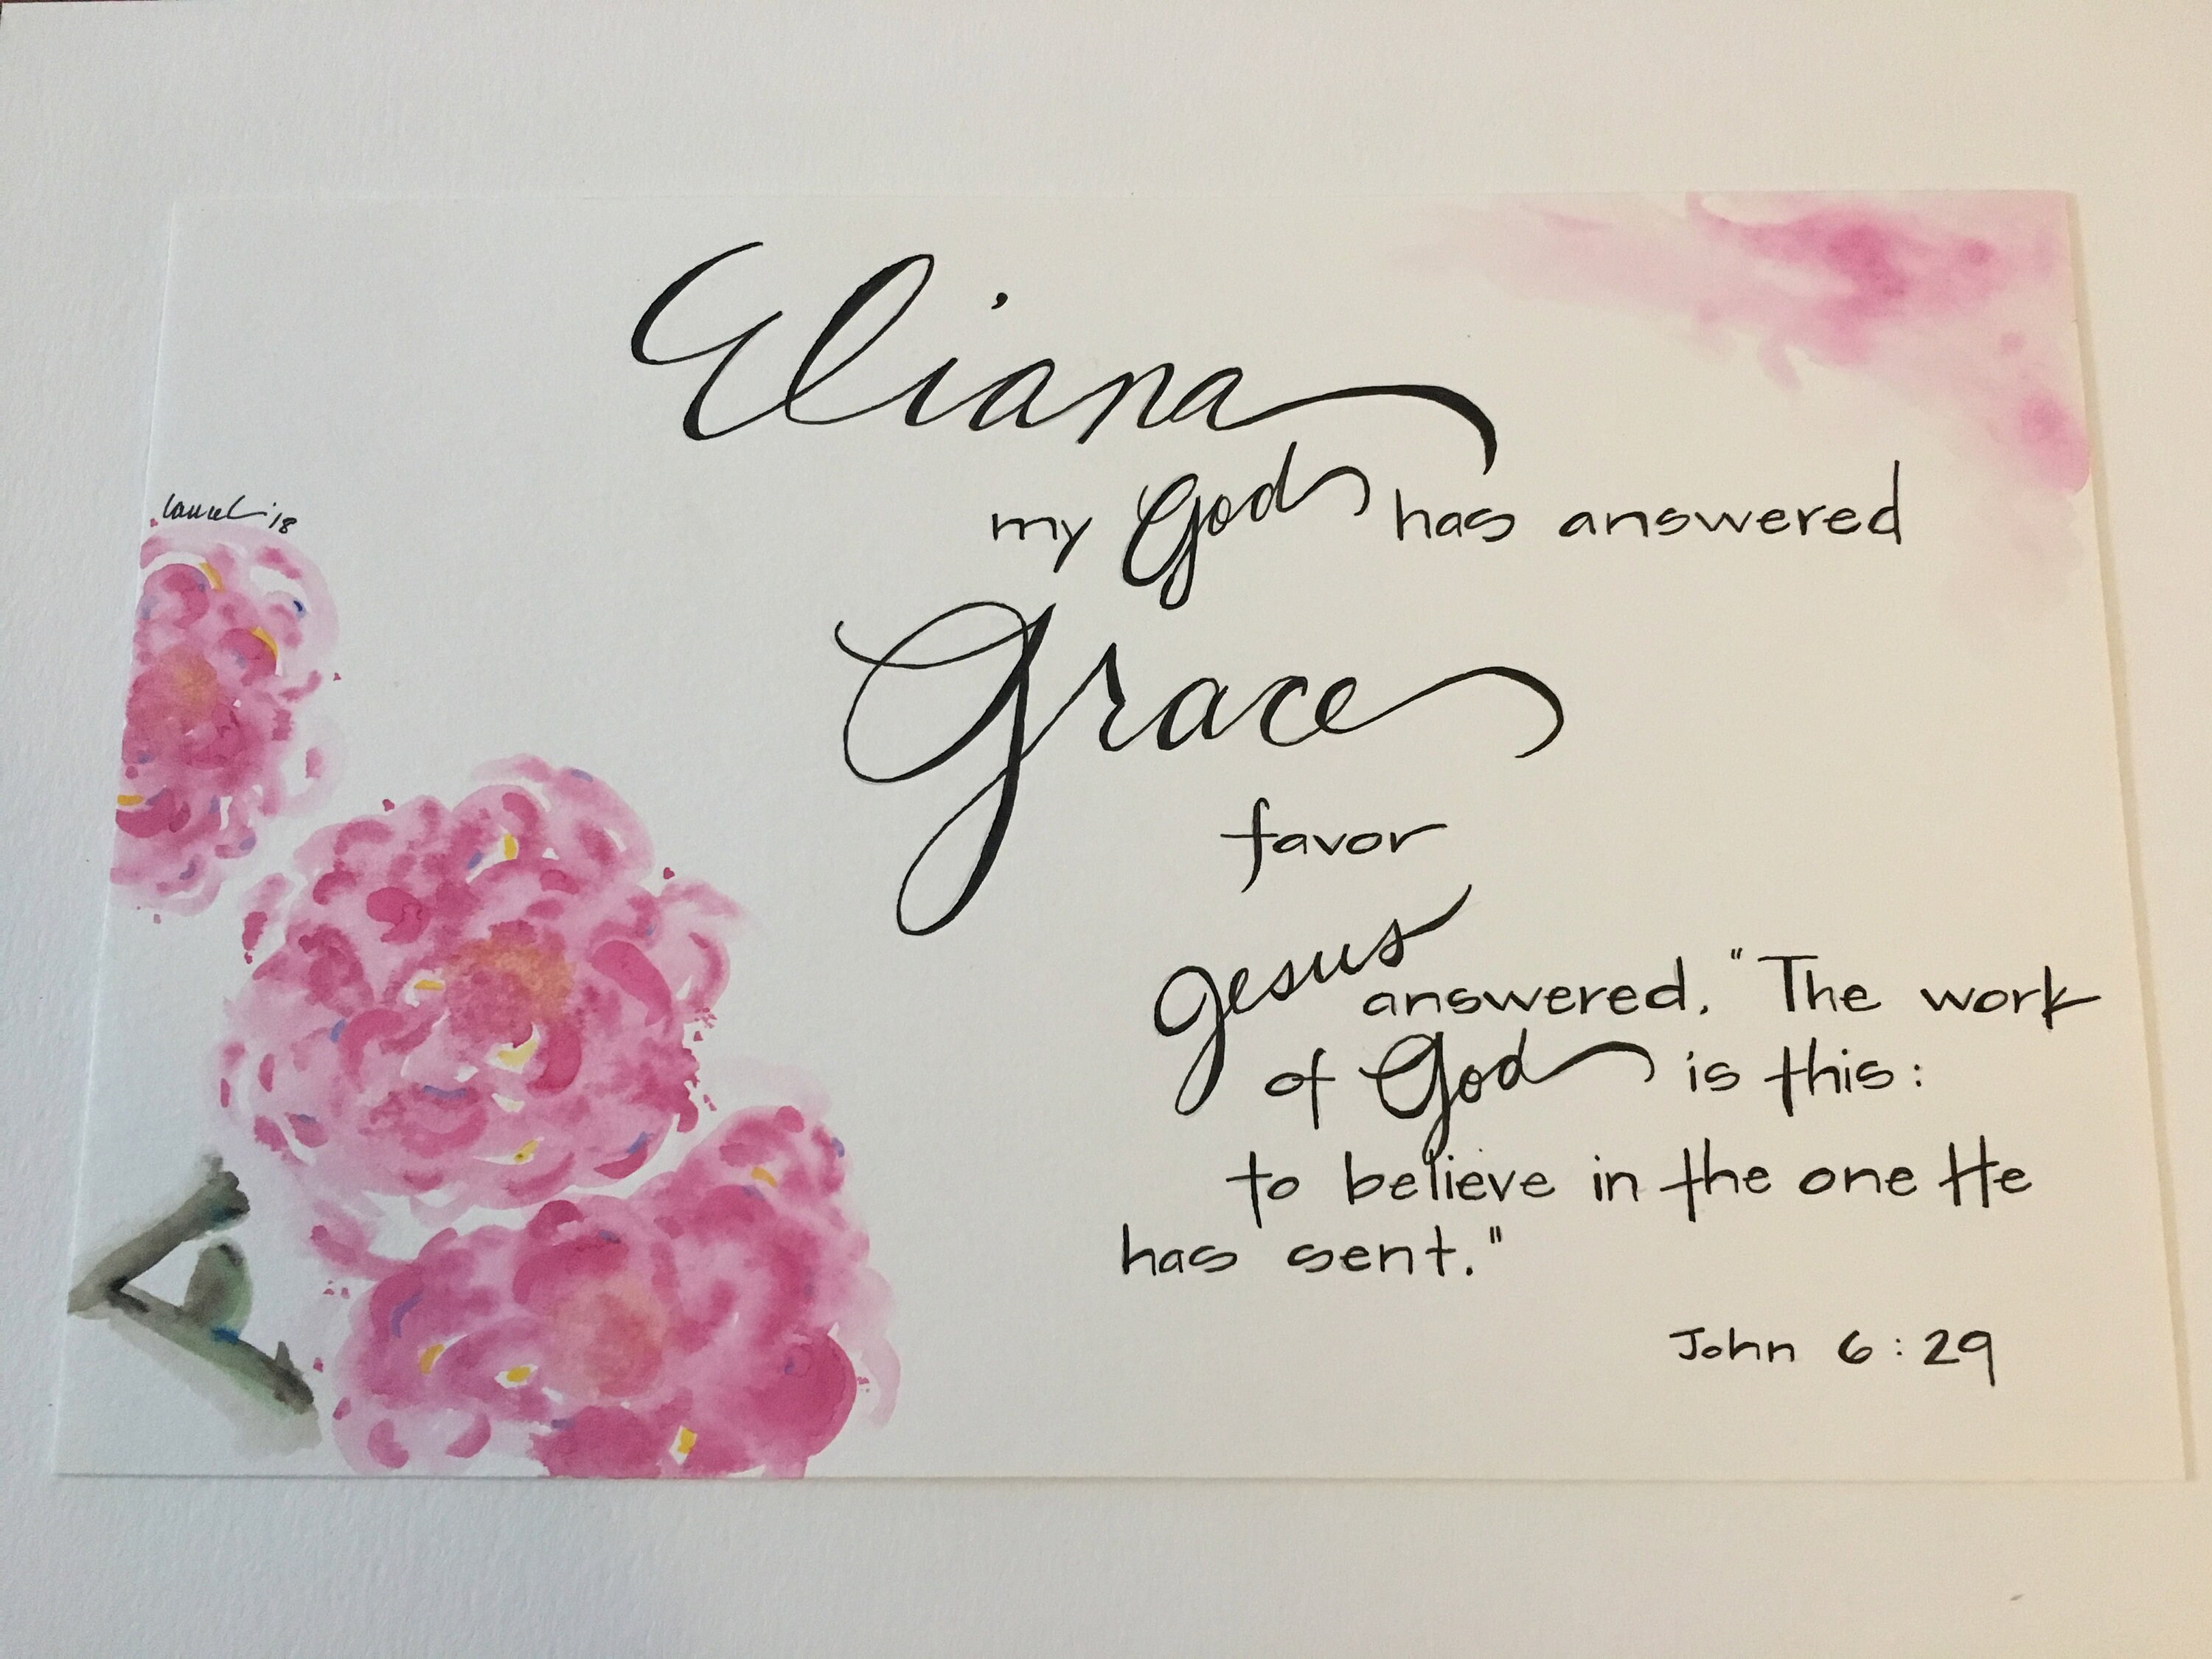 Eliana
my God has answered
Laurel '18
Grace
favor
Jesus
answered, "The work
of God is this:
to believe in the one He
has sent."
John 6:29